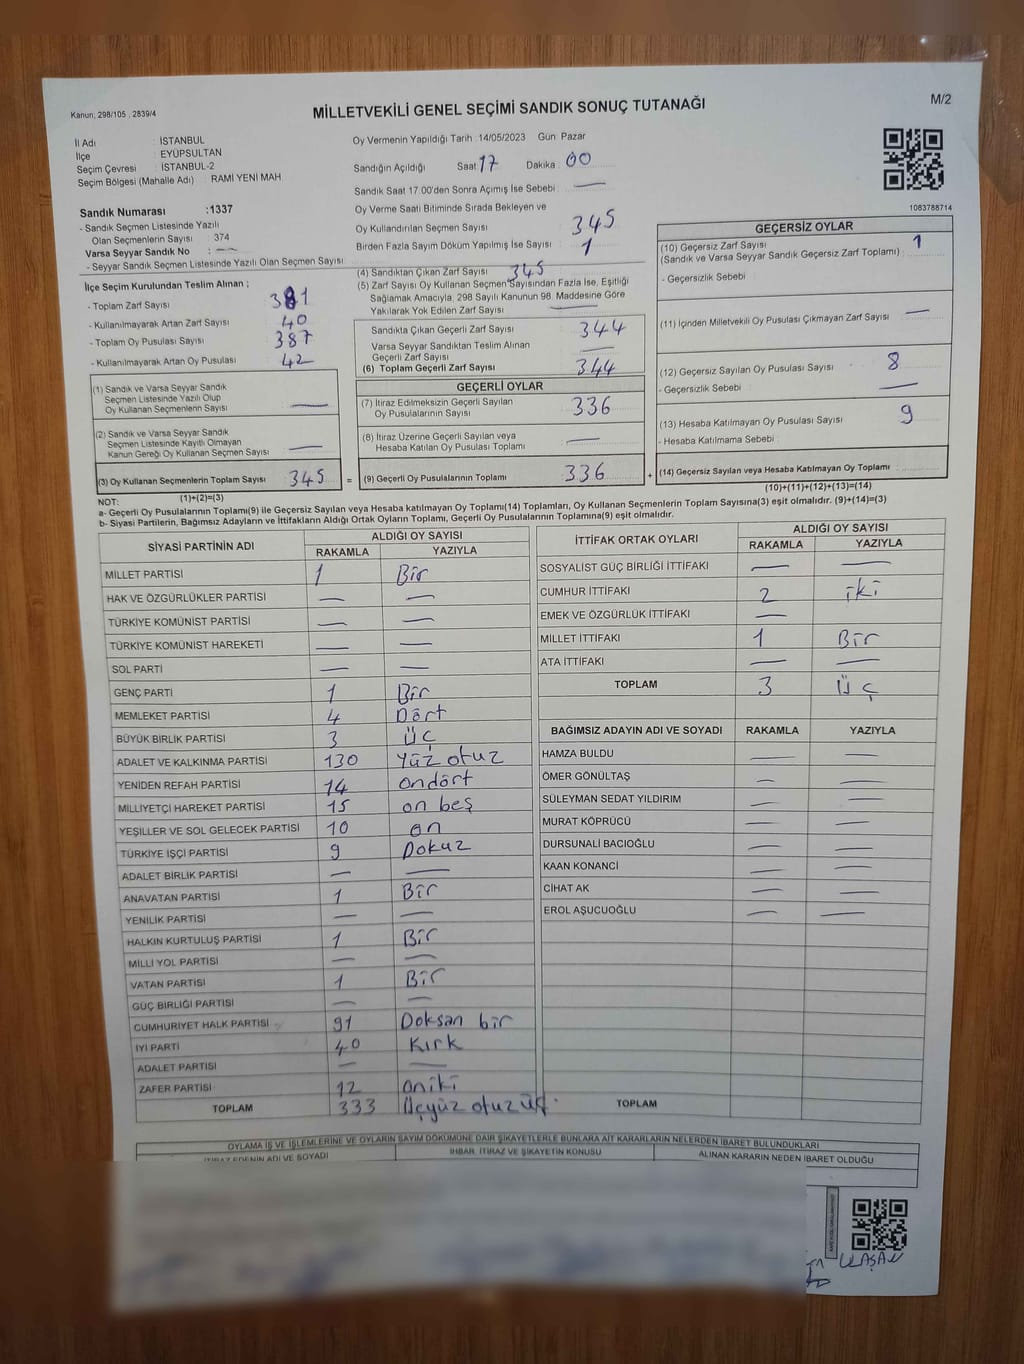 Kanun; 298/105 , 2839/4
MİLLETVEKİLİ GENEL SEÇİMİ SANDIK SONUÇ TUTANAĞI
M/2
İl Adı : İSTANBUL
İlçe : EYÜPSULTAN
Seçim Çevresi : İSTANBUL-2
Seçim Bölgesi (Mahalle Adı) : RAMİ YENİ MAH
Sandık Numarası :1337
- Sandık Seçmen Listesinde Yazılı
Olan Seçmenlerin Sayısı : 374
Varsa Seyyar Sandık No : —
- Seyyar Sandık Seçmen Listesinde Yazılı Olan Seçmen Sayısı
Oy Vermenin Yapıldığı Tarih : 14/05/2023 Gün: Pazar
Sandığın Açıldığı Saat 17 Dakika : 00
Sandık Saat 17.00'den Sonra Açımış İse Sebebi : —
Oy Verme Saati Bitiminde Sırada Bekleyen ve
Oy Kullandırılan Seçmen Sayısı 345
Birden Fazla Sayım Döküm Yapılmış İse Sayısı 1
1083788714
İlçe Seçim Kurulundan Teslim Alınan ;
- Toplam Zarf Sayısı 381
- Kullanılmayarak Artan Zarf Sayısı : 40
- Toplam Oy Pusulası Sayısı : 387
- Kullanılmayarak Artan Oy Pusulası 42
(1) Sandık ve Varsa Seyyar Sandık
Seçmen Listesinde Yazılı Olup
Oy Kullanan Seçmenlerin Sayısı —
(2) Sandık ve Varsa Seyyar Sandık
Seçmen Listesinde Kayıtlı Olmayan
Kanun Gereği Oy Kullanan Seçmen Sayısı —
(3) Oy Kullanan Seçmenlerin Toplam Sayısı 345 =
(1)+(2)=(3)
(4) Sandıktan Çıkan Zarf Sayısı 345
(5) Zarf Sayısı Oy Kullanan Seçmen Sayısından Fazla İse, Eşitliği
Sağlamak Amacıyla, 298 Sayılı Kanunun 98. Maddesine Göre
Yakılarak Yok Edilen Zarf Sayısı —
Sandıkta Çıkan Geçerli Zarf Sayısı 344
Varsa Seyyar Sandıktan Teslim Alınan
Geçerli Zarf Sayısı —
(6) Toplam Geçerli Zarf Sayısı 344
GEÇERLİ OYLAR
(7) İtiraz Edilmeksizin Geçerli Sayılan
Oy Pusulalarının Sayısı 336
(8) İtiraz Üzerine Geçerli Sayılan veya
Hesaba Katılan Oy Pusulası Toplamı —
(9) Geçerli Oy Pusulalarının Toplamı 336 +
GEÇERSİZ OYLAR
(10) Geçersiz Zarf Sayısı 1
(Sandık ve Varsa Seyyar Sandık Geçersiz Zarf Toplamı)
- Geçersizlik Sebebi
(11) İçinden Milletvekili Oy Pusulası Çıkmayan Zarf Sayısı —
(12) Geçersiz Sayılan Oy Pusulası Sayısı 8
- Geçersizlik Sebebi : —
(13) Hesaba Katılmayan Oy Pusulası Sayısı 9
- Hesaba Katılmama Sebebi :
(14) Geçersiz Sayılan veya Hesaba Katılmayan Oy Toplamı
(10)+(11)+(12)+(13)=(14)
NOT:
a- Geçerli Oy Pusulalarının Toplamı(9) ile Geçersiz Sayılan veya Hesaba katılmayan Oy Toplamı(14) Toplamları, Oy Kullanan Seçmenlerin Toplam Sayısına(3) eşit olmalıdır. (9)+(14)=(3)
b- Siyasi Partilerin, Bağımsız Adayların ve İttifakların Aldığı Ortak Oyların Toplamı, Geçerli Oy Pusulalarının Toplamına(9) eşit olmalıdır.
SİYASİ PARTİNİN ADI ALDIĞI OY SAYISI
RAKAMLA YAZIYLA
MİLLET PARTİSİ 1 Bir
HAK VE ÖZGÜRLÜKLER PARTİSİ — —
TÜRKİYE KOMÜNİST PARTİSİ — —
TÜRKİYE KOMÜNİST HAREKETİ — —
SOL PARTİ — —
GENÇ PARTİ 1 Bir
MEMLEKET PARTİSİ 4 Dört
BÜYÜK BİRLİK PARTİSİ 3 Üç
ADALET VE KALKINMA PARTİSİ 130 Yüz otuz
YENİDEN REFAH PARTİSİ 14 ondört
MİLLİYETÇİ HAREKET PARTİSİ 15 on beş
YEŞİLLER VE SOL GELECEK PARTİSİ 10 on
TÜRKİYE İŞÇİ PARTİSİ 9 Dokuz
ADALET BİRLİK PARTİSİ — —
ANAVATAN PARTİSİ 1 Bir
YENİLİK PARTİSİ — —
HALKIN KURTULUŞ PARTİSİ 1 Bir
MİLLİ YOL PARTİSİ — —
VATAN PARTİSİ 1 Bir
GÜÇ BİRLİĞİ PARTİSİ — —
CUMHURİYET HALK PARTİSİ 91 Doksan bir
İYİ PARTİ 40 Kırk
ADALET PARTİSİ — —
ZAFER PARTİSİ 12 oniki
TOPLAM 333 Üçyüz otuzüç
İTTİFAK ORTAK OYLARI ALDIĞI OY SAYISI
RAKAMLA YAZIYLA
SOSYALİST GÜÇ BİRLİĞİ İTTİFAKI — —
CUMHUR İTTİFAKI 2 iki
EMEK VE ÖZGÜRLÜK İTTİFAKI —
MİLLET İTTİFAKI 1 Bir
ATA İTTİFAKI — —
TOPLAM 3 Üç
BAĞIMSIZ ADAYIN ADI VE SOYADI RAKAMLA YAZIYLA
HAMZA BULDU — —
ÖMER GÖNÜLTAŞ — —
SÜLEYMAN SEDAT YILDIRIM — —
MURAT KÖPRÜCÜ — —
DURSUNALİ BACIOĞLU — —
KAAN KONANCİ — —
CİHAT AK — —
EROL AŞUCUOĞLU — —
TOPLAM
OYLAMA İŞ VE İŞLEMLERİNE VE OYLARIN SAYIM DÖKÜMÜNE DAİR ŞİKAYETLERLE BUNLARA AİT KARARLARIN NELERDEN İBARET BULUNDUKLARI
İTİRAZ EDENİN ADI VE SOYADI İHBAR, İTİRAZ VE ŞİKAYETİN KONUSU ALINAN KARARIN NEDEN İBARET OLDUĞU
ULAŞAN